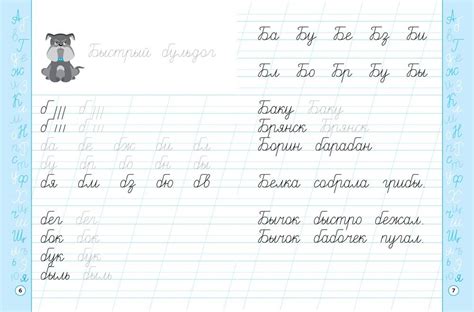 Быстрый бульдог
б б
б б
ба бе бж би бл
бу бр бо бы
бя бм бз бю бв
бег бег
бок бок
бук бук
быль быль
6
Ба Бу Бе Бз Би
Бл Бо Бр Бу Бы
Баку Баку
Брянск Брянск
Борин барабан
Белка собрала грибы.
Бычок быстро бежал.
Бычок бабочек пугал.
7